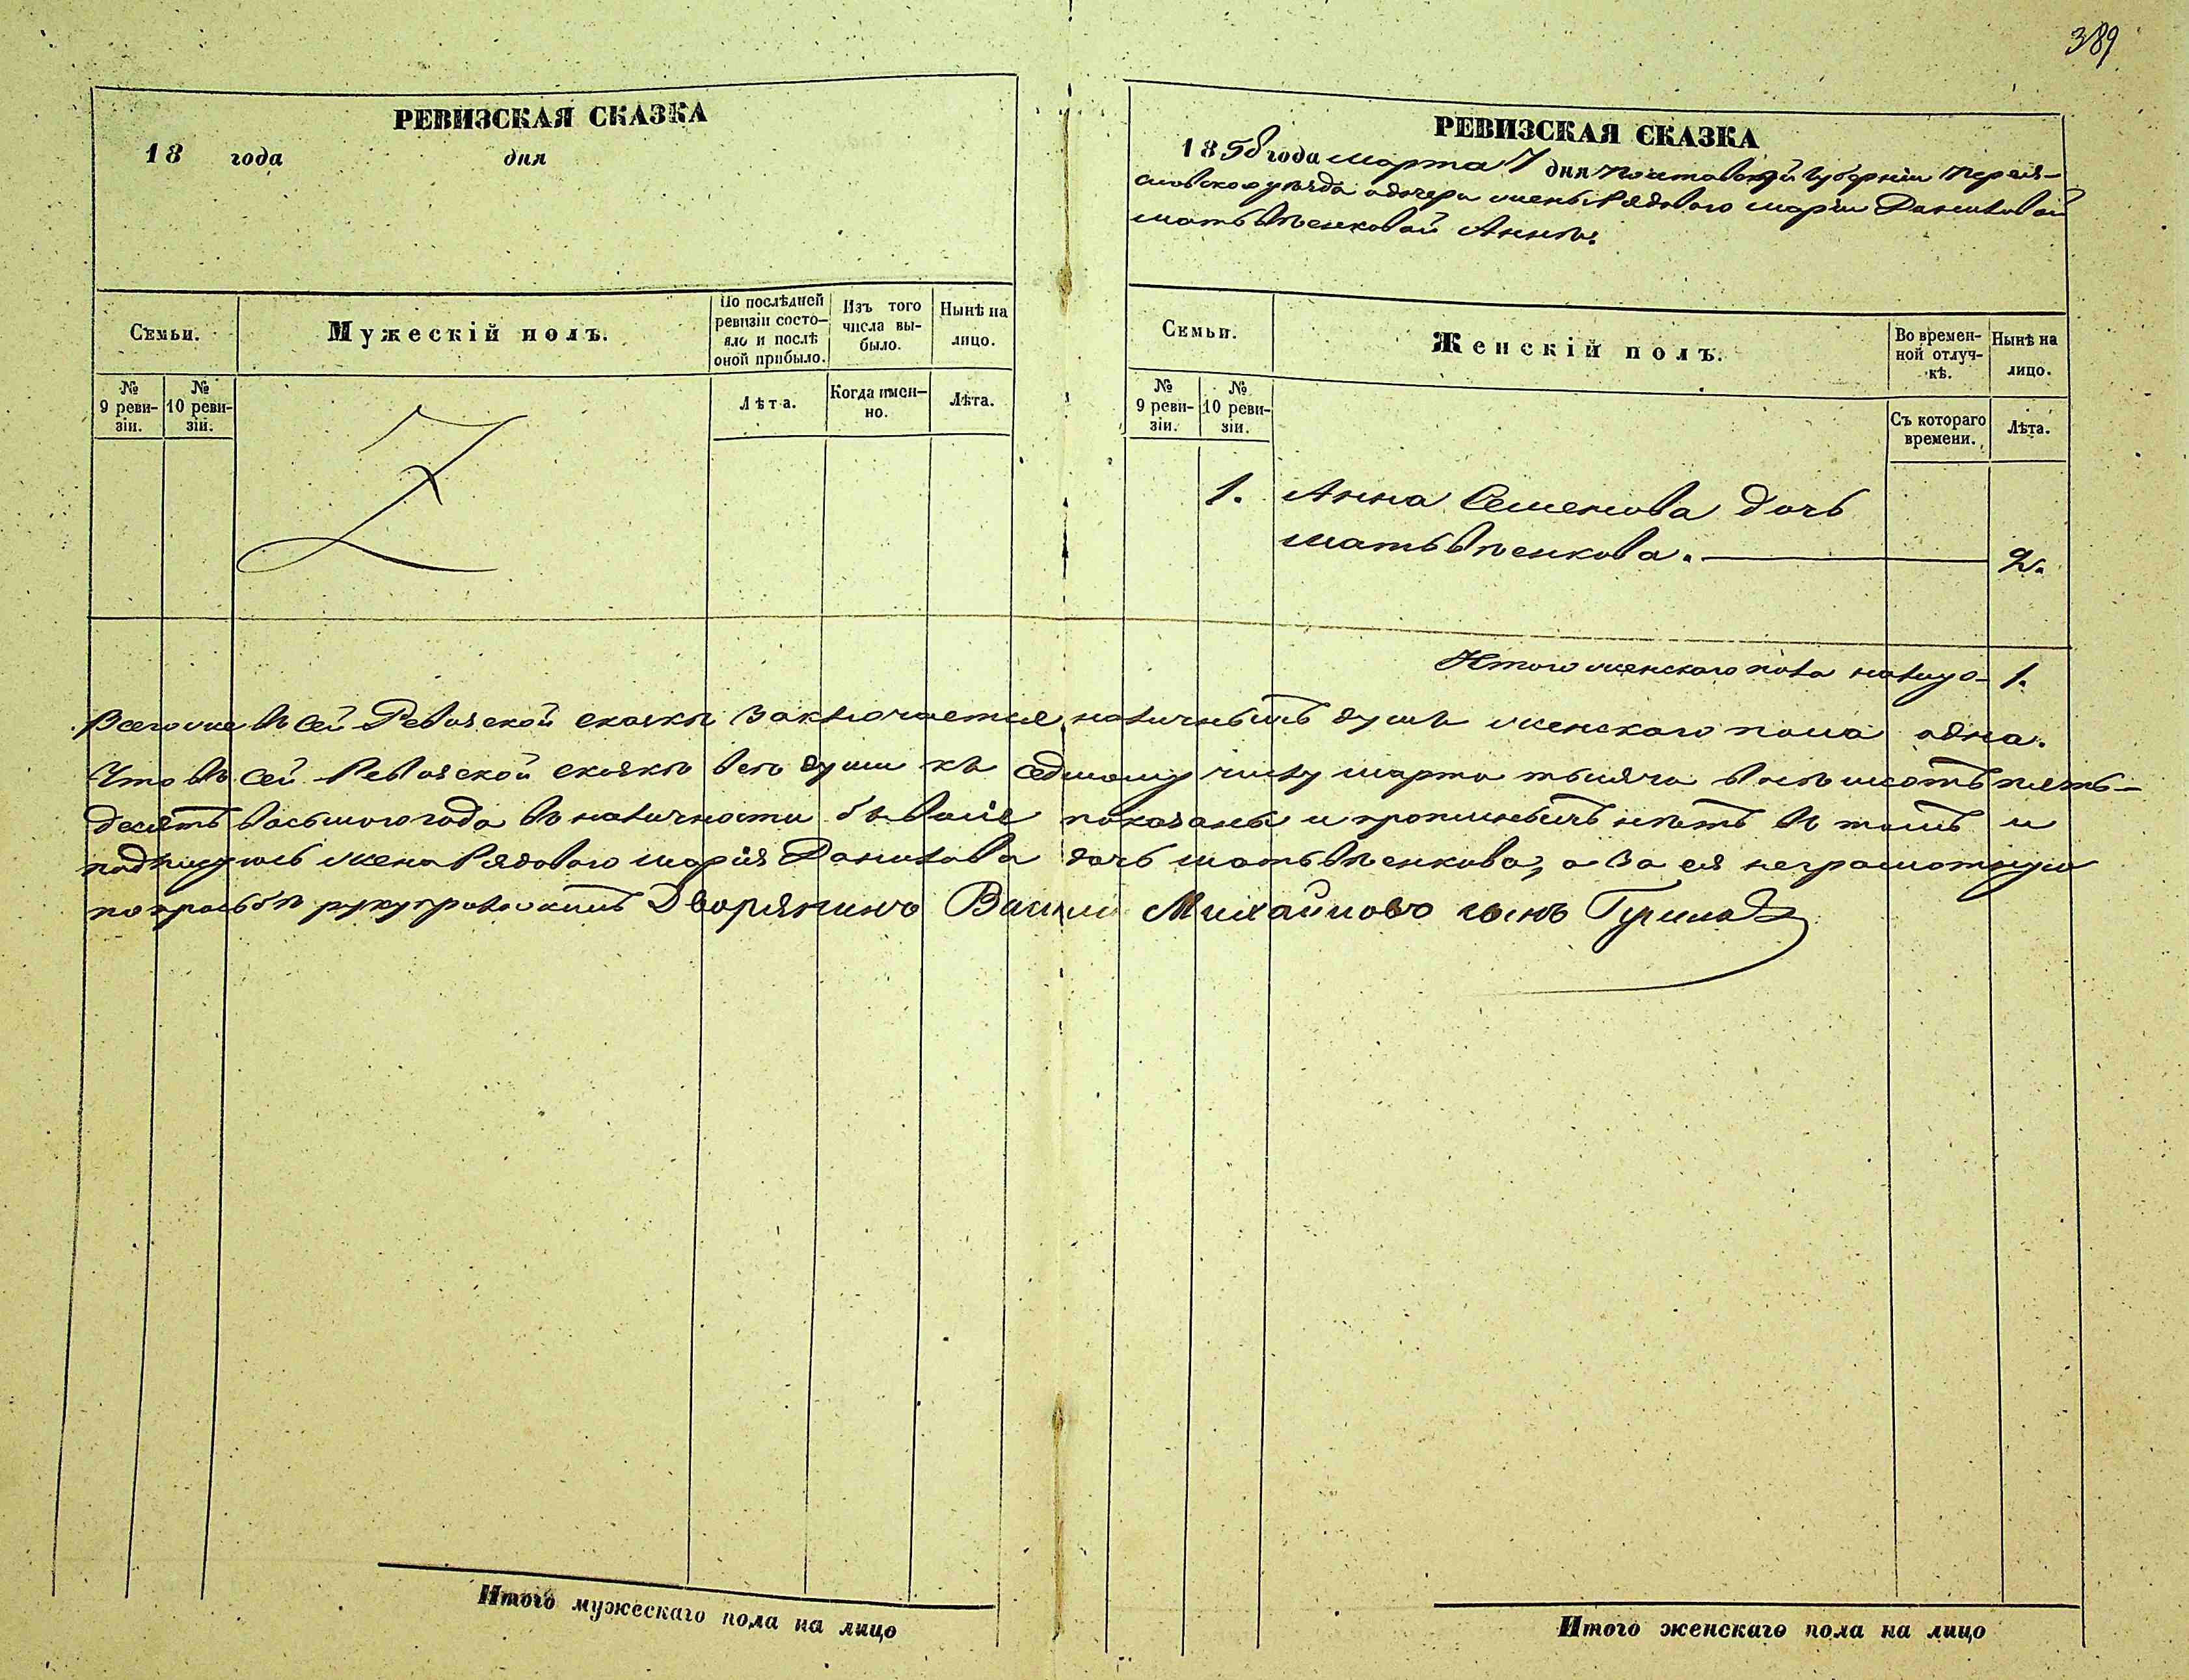 389
РЕВИЗСКАЯ СКАЗКА
18 года дня
Семьи.
Мужескій полъ.
По послѣдней ревизіи состо-
яло и послѣ оной прибыло.
Изъ того числа вы-
было.
Нынѣ на лицо.
№ 9 реви-
зіи.
№ 10 реви-
зіи.
Лѣта.
Когда имен-
но.
Лѣта.
РЕВИЗСКАЯ СКАЗКА
1858 года марта 7 дня Полтавской Губерніи Перея-
славского уѣзда о дочери жены Рядового Маріи Даниловой
Матвѣенковой Аннѣ.
Семьи.
Женскій полъ.
Во времен-
ной отлуч-
кѣ.
Нынѣ на лицо.
№ 9 реви-
зіи.
№ 10 реви-
зіи.
Съ котораго времени.
Лѣта.
1. Анна Семенова дочь
Матьвѣенкова. 2.
Итого женскаго пола налицо 1.
Всего же въ сей Ревизской сказкѣ заключается наличныхъ душъ женскаго пола одна.
Что въ сей Ревизской сказкѣ всѣ души къ седмому числу марта тысяча восѣмсотъ пять-
десятъ восьмого года въ наличности показаны и прописныхъ нѣтъ въ томъ и
подписуюсь жена Рядового Марія Данилова дочь Матьвѣенкова, а за ея неграмотную
по прозьбѣ Дворянинъ Василій Михайловъ сынъ
Итого мужескаго пола на лицо
Итого женскаго пола на лицо